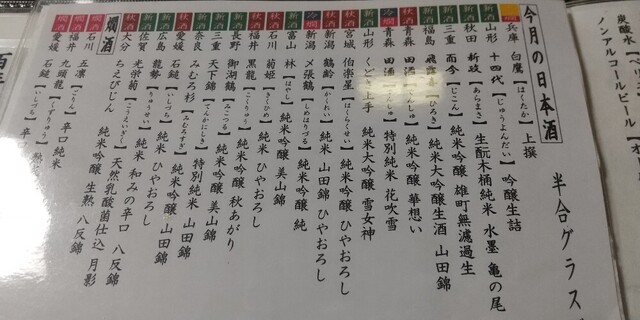 今月の日本酒
半合グラス
燗 兵庫 白鷹【はくたか】上撰
新酒 山形 十四代【じゅうよんだい】吟醸生詰
新酒 秋田 新政【あらまさ】生酛木桶純米 水墨 亀の尾
三重 而今【じこん】純米吟醸 雄町無濾過生
新酒 福島 飛露喜【ひろき】純米大吟醸生酒 山田錦
秋酒 青森 田酒 純米吟醸 華想い
冷燗 青森 田酒 特別純米 花吹雪
新酒 山形 くどき上手 純米大吟醸 雪女神
秋酒 宮城 伯楽星【はくらくせい】純米吟醸 ひやおろし
秋酒 新潟 鶴齢【かくれい】純米 山田錦 ひやおろし
冷燗 新潟 〆張鶴【しめはりづる】純米吟醸 純
新酒 富山 林【はやし】純米吟醸 美山錦
秋酒 石川 菊姫【きくひめ】純米 ひやおろし
秋酒 福井 黒龍 純米吟醸 ひやおろし
新酒 長野 御湖鶴【みこつる】純米吟醸 秋あがり
新酒 三重 天下錦【てんかにしき】純米吟醸 美山錦
新酒 奈良 みむろ杉【みむろすぎ】特別純米 山田錦
秋酒 愛媛 石鎚【いしづち】純米吟醸 山田錦
新酒 広島 龍勢【りゅうせい】純米 ひやおろし
新酒 佐賀 光栄菊【こうえいぎく】純米 和みの辛口 八反錦
秋酒 大分 ちえびじん 純米吟醸 生熟 八反錦
燗酒
燗酒 石川 五凛【ごりん】辛口純米 天然乳酸菌仕込 月影
燗酒 福井 九頭龍【くずりゅう】
燗酒 愛媛 石鎚【いしづち】
炭酸水
ノンアルコールビール